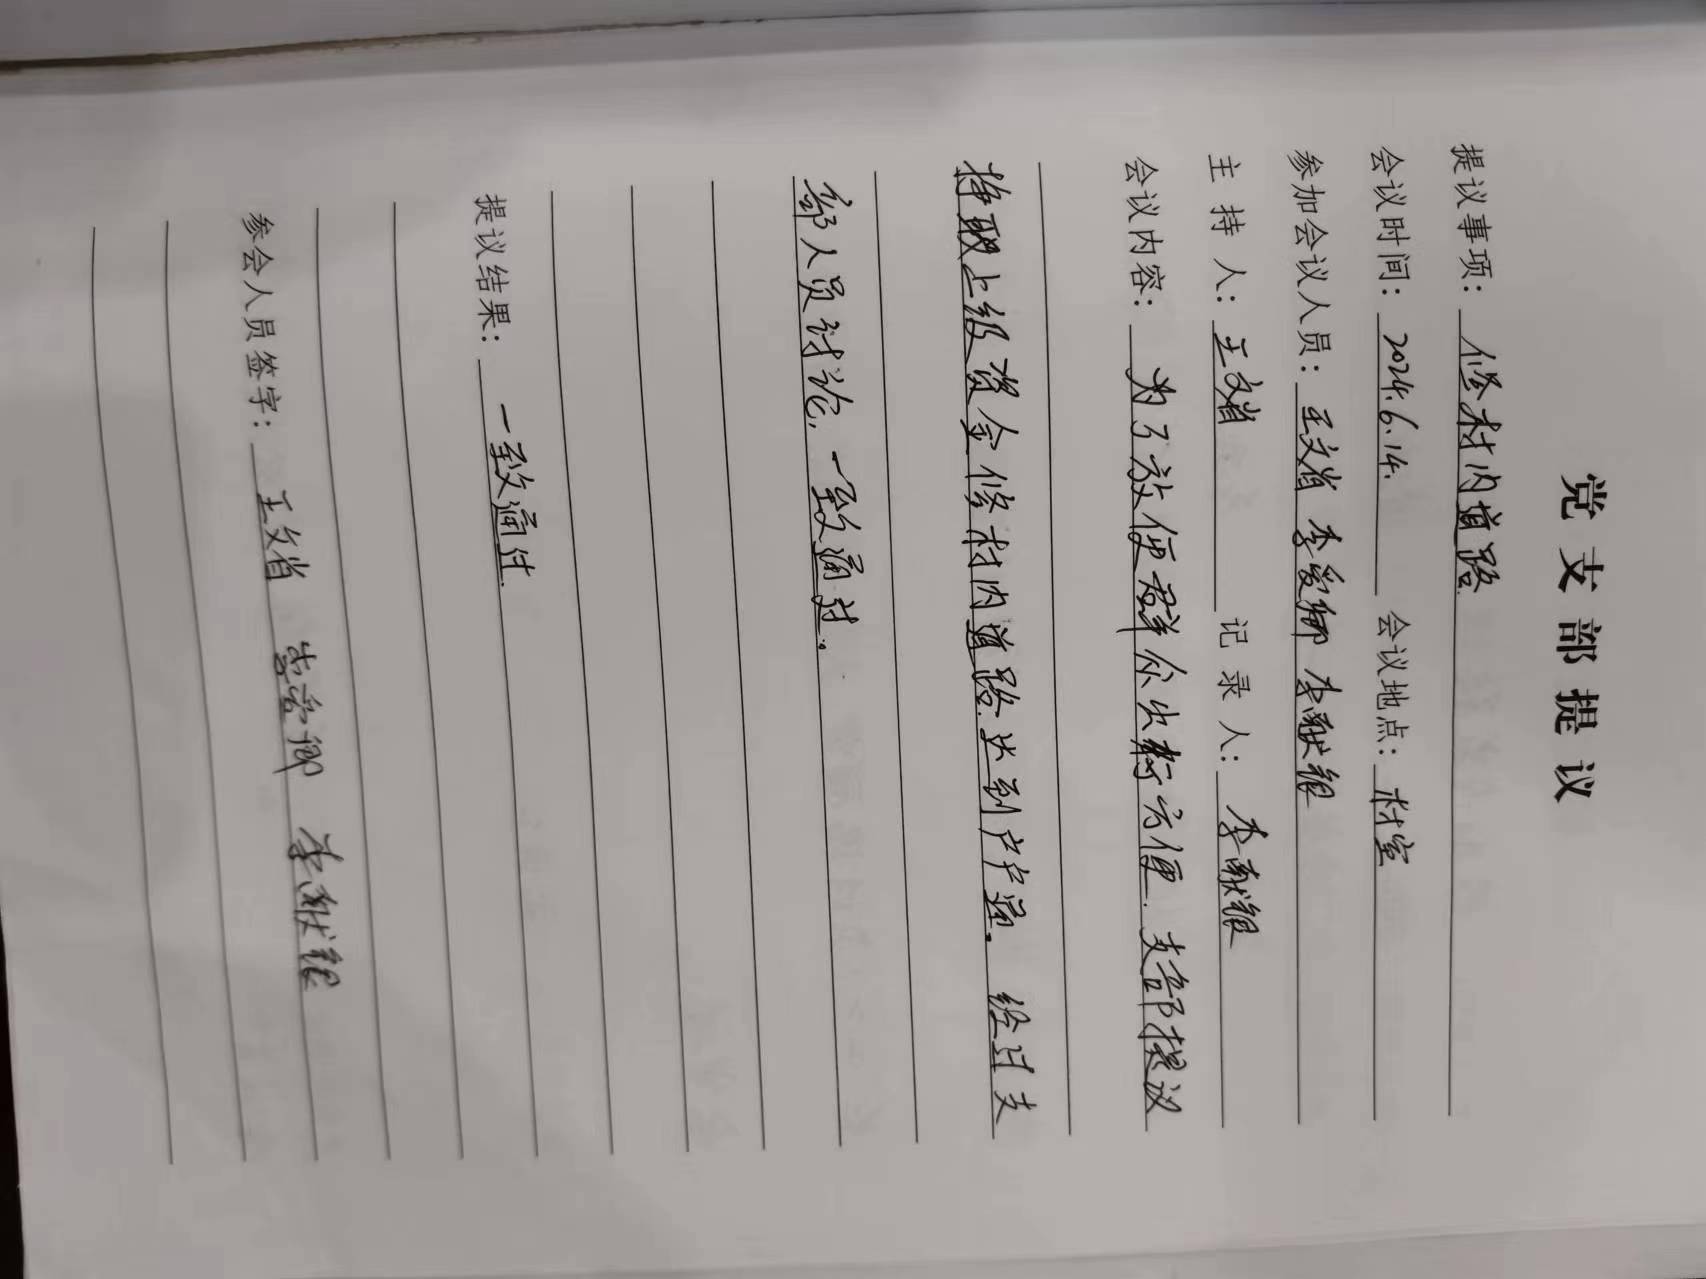 党支部提议
提议事项：修村内道路
会议时间：2024.6.14. 会议地点：村室
参加会议人员：王文省 李爱卿 李献银
主持人：王文省 记录人：李献银
会议内容：为了放便群众出行方便.支部提议
挣取上级资金修村内道路.达到户户通.经过支
部人员讨论,一致通过.
提议结果：一致通过.
参会人员签字：王文省 李爱卿 李献银